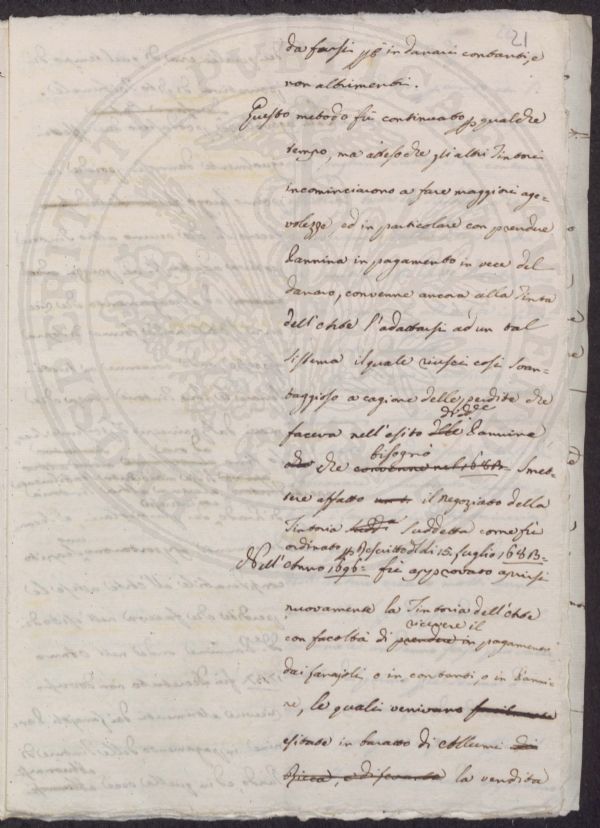 21
da farsi p in danari contanti, e
non altrimenti.
Questo metodo fù continuato p qualche
tempo, ma atteso che gli altri Tintori
incominciarono a fare maggiori age-
volezze, ed in particolare con prendere
Pannina in pagamento in vece del
danaro, convenne ancora alla Tinta
dell'Arte l'adattarsi ad un tal
sistema il quale riuscì così svan-
taggioso a cagione delle perdite che
faceva nell'esito delle Pannine
che bisognò convenne nel 1683. smet-
tere affatto il Negoziato della
Tintoria sudd.a suddetta come fù
ordinato p Rescritto di 15. Luglio 1683.
Nell'Anno 1696. fù approvato aprirsi
nuovamente la Tintoria dell'Arte
con facoltà di prendere ricevere il pagamento
dai Lanajoli, o in contanti, o in Panni-
ne, le quali venivano facilmente
esitate in baratto di Allumi di
la vendita